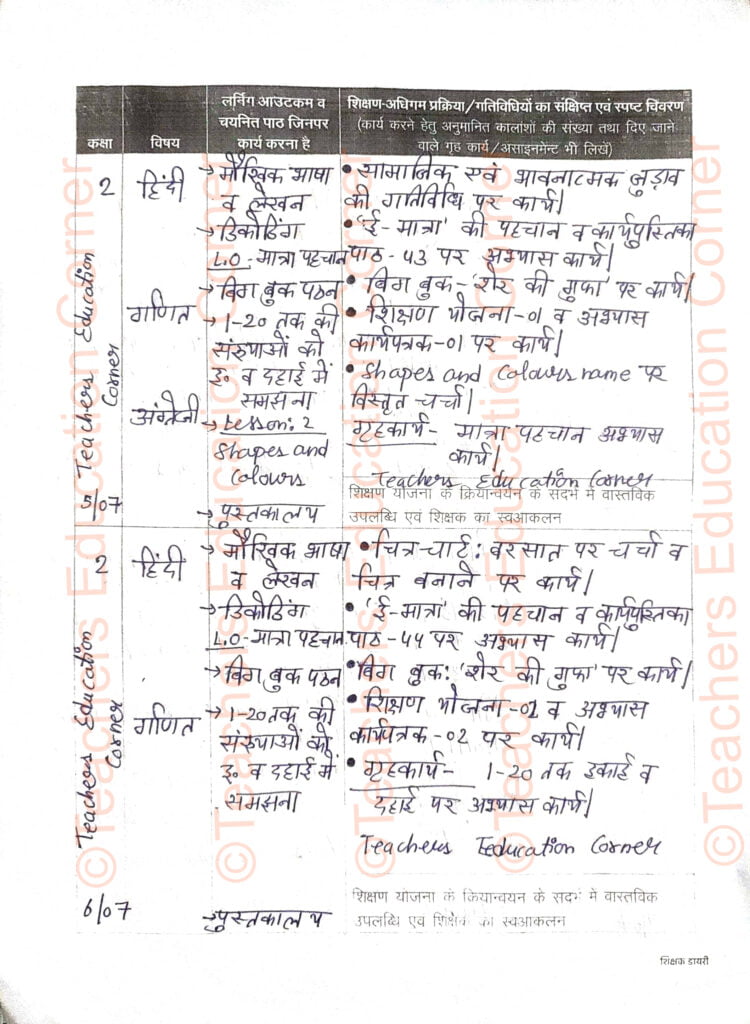 कक्षा
विषय
लर्निंग आउटकम व
चयनित पाठ जिनपर
कार्य करना है
शिक्षण-अधिगम प्रक्रिया/गतिविधियों का संक्षिप्त एवं स्पष्ट विवरण
(कार्य करने हेतु अनुमानित कालांशों की संख्या तथा दिए जाने
वाले गृह कार्य/असाइनमेन्ट भी लिखें)
2
हिंदी
→ मौखिक भाषा
व लेखन
→ डिकोडिंग
L.O- मात्रा पहचान
→ बिग बुक पठन
गणित
→ 1-20 तक की
संख्याओं को
इ० व दहाई में
समझना
अंग्रेजी
→ Lesson: 2
Shapes and
Colours
→ पुस्तकालय
• सामाजिक एवं भावनात्मक जुड़ाव
की गतिविधि पर कार्य|
• 'ई-मात्रा' की पहचान व कार्यपुस्तिका
पाठ - 43 पर अभ्यास कार्य|
• बिग बुक - 'शेर की गुफा' पर कार्य|
• शिक्षण योजना-01 व अभ्यास
कार्यपत्रक-01 पर कार्य|
• Shapes and Colours name पर
विस्तृत चर्चा|
गृहकार्य - मात्रा पहचान अभ्यास
कार्य|
Teachers Education Corner
शिक्षण योजना के क्रियान्वयन के सदर्भ में वास्तविक
उपलब्धि एवं शिक्षक का स्वआकलन
Teachers Education
Corner
5/07
2
हिंदी
→ मौखिक भाषा
व लेखन
→ डिकोडिंग
L.O- मात्रा पहचान
→ बिग बुक पठन
गणित
→ 1-20 तक की
संख्याओं को
इ० व दहाई में
समझना
→ पुस्तकालय
• चित्र-चार्ट: बरसात पर चर्चा व
चित्र बनाने पर कार्य|
• 'ई-मात्रा' की पहचान व कार्यपुस्तिका
पाठ - 44 पर अभ्यास कार्य|
• बिग बुक: 'शेर की गुफा' पर कार्य|
• शिक्षण योजना-02 व अभ्यास
कार्यपत्रक-02 पर कार्य|
• गृहकार्य - 1-20 तक इकाई व
दहाई पर अभ्यास कार्य|
Teachers Teducation Corner
शिक्षण योजना के क्रियान्वयन के सदर्भ में वास्तविक
उपलब्धि एव शिक्षक का स्वआकलन
Teachers Education
Corner
6/07
शिक्षक डायरी
©Teachers Education Corner
©Teachers Education Corner
©Teachers Education Corner
©Teachers Education Corner